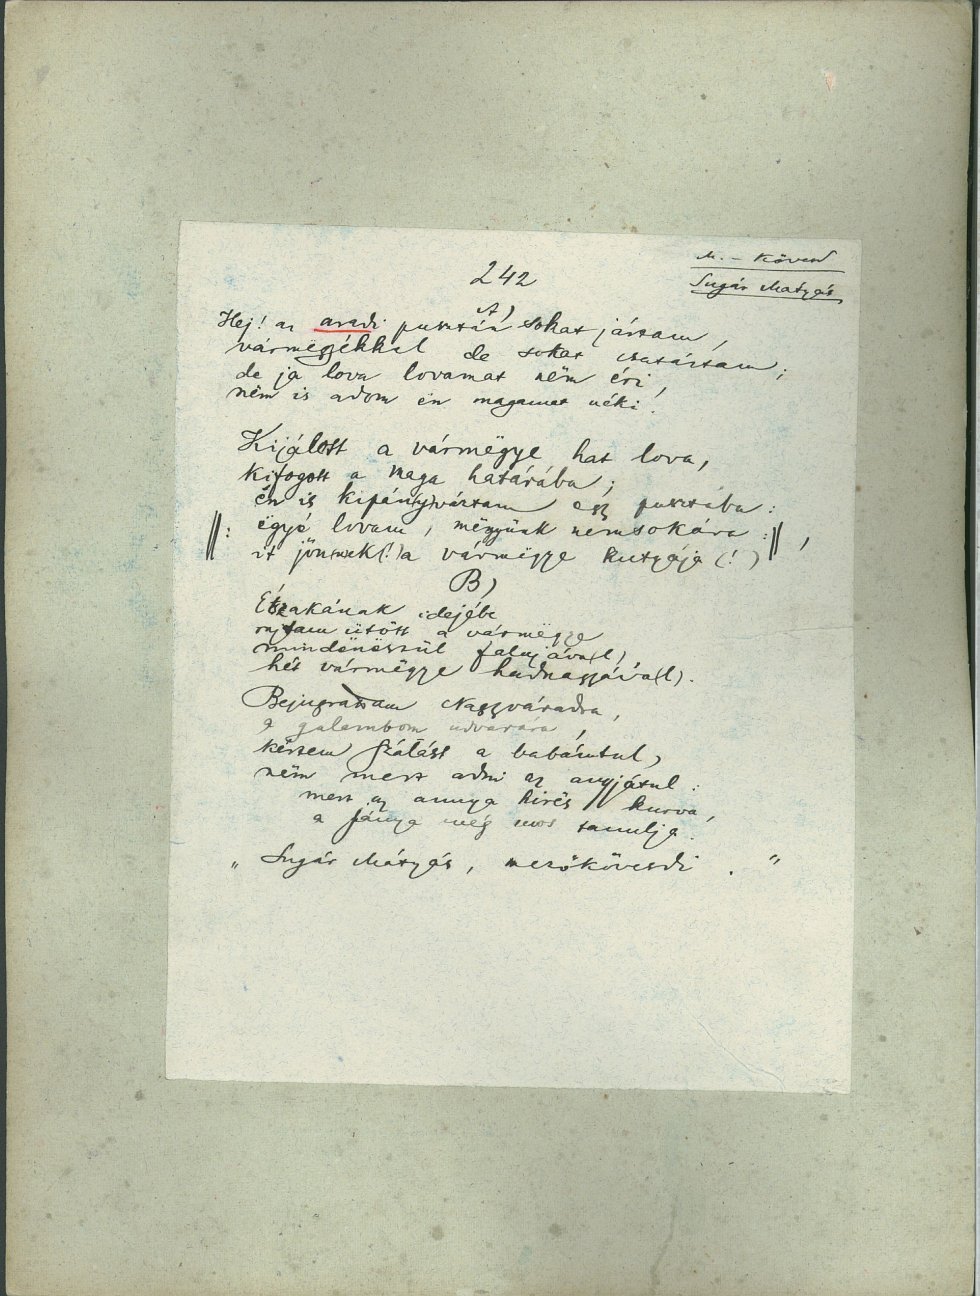 M. – Kövesd
Sugár Mátyás
242
A)
Hej! az aradi pusztán sokat jártam,
vármëgyékkel de sokat csatáztam;
de ja lova lovamat nëm éri,
nëm is adom én magamat néki.
Kijálost a vármëgye hat lova,
kifogott a maga határába;
én is kipány(v)váztam egy pusztába:
‖: ëgyé lovam, mënyünk nemsokára :‖,
it jönnek(!) a vármëgye kutyája (!)
B)
Étszakának idejébe
rajtam ütött a vármëgye
mindënëstül falujáva(l),
hét vármëgye hadnagyjáva(l).
Bejugrattam Nagyváradra,
a galambom udvarára,
kértem szálást a babámtul,
nëm mert adni az anyjátul:
mert az annya hirës kurva,
a jánya még mos tanulja.
„Sugár Mátyás, mezőkövesdi."